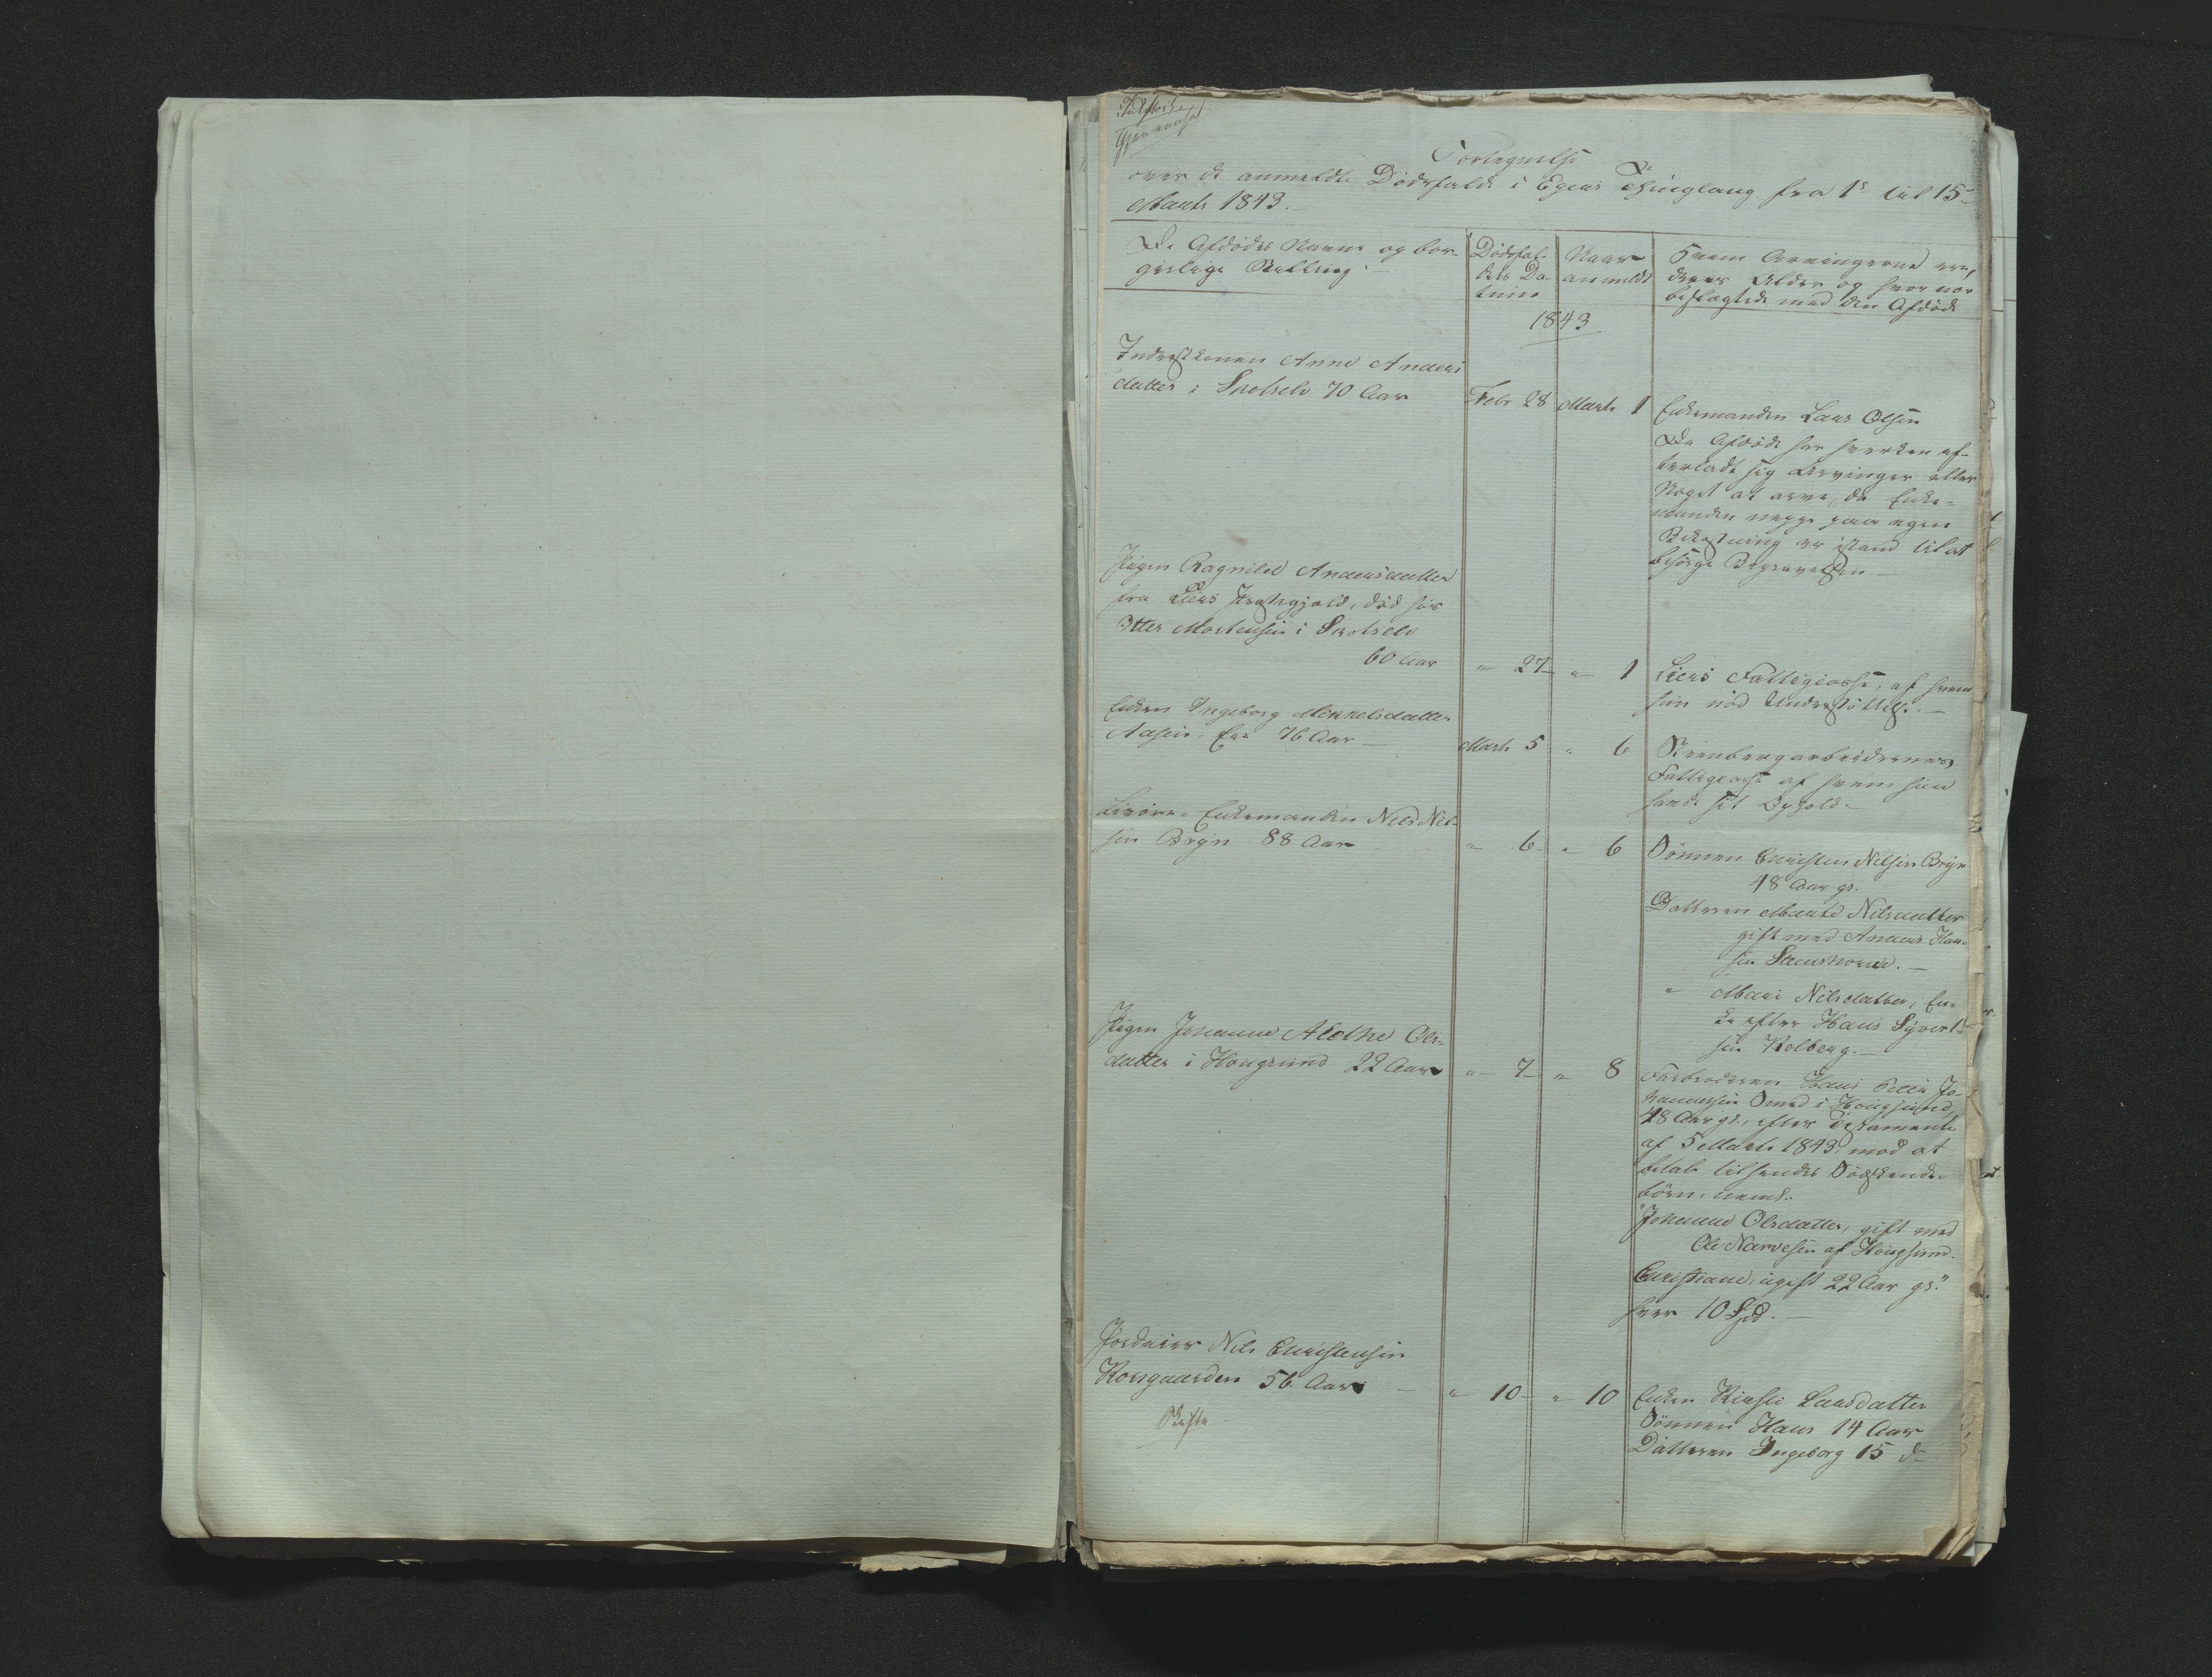 Fortegnelse
over de anmeldte Dödsfald i Egers Thinglaug fra 1e til 15de
Marts 1843.
De Afdödes Navne og bor-
gerlige Stilling.
Dödsfal-
dets Da-
tum
Naar
anmeldt
Hvem Arvingerne ere,
deres Alder og hvor nær
beslægtede med den Afdöde
1843
Inderstkonen Anne Anders
datter i Skotselv 70 Aar
Febr 28 Marts 1
Enkemanden Lars Olsen
Den Afdöde har hverken ef-
terladt sig Arvinger eller
Noget at arve, da Enke-
manden neppe paa egen
Bekostning er istand til at
besörge Begravelsen.
Pigen Ragnild Andersdatter
fra Liers Præstegjeld, död hos
Otter Mortensen i Skotselv
60 Aar
" 27 " 1
Liers Fattigcasse, af hvem
hun nöd Understöttelse.
Enken Ingeborg Mikkelsdatter
Aasen Eie 76 Aar
Marts 5 " 6
Steenbergarbeidernes
Fattigcasse af hvem hun
havde sit Ophold.
Livöre- Enkemanden Niels Niel-
sen Bryn 88 Aar
" 6 " 6
Sönnen Christen Nilsen Bryn
48 Aar gl.
Datteren Marte Nilsdatter
gift med Anders Han-
sen Steenshorne.
" Mari Nilsdatter, En-
ke efter Hans Syvert-
sen Kolberg.
Pigen Johanne Alethe Ols-
datter i Hougsund 22 Aar
" 7 " 8
Farbroderen Hans Peter Jo-
hannessen Smed i Hougsund,
48 Aar gl. efter Testamente
af 5 Marts 1843, mod at
betale tilhendes Södskende-
börn, nemlig:
"Johanne Olsdatter, gift med
Ole Narvesen af Hougsund.
Christiane, ugift 22 Aar gl."
hver 10 Spd.
Jordeier Nils Christensen
Korsgaarden 56 Aar
" 10 " 10
Skifte
Enken Kirsti Larsdatter
Sönnen Hans 14 Aar
Datteren Ingeborg 15 do